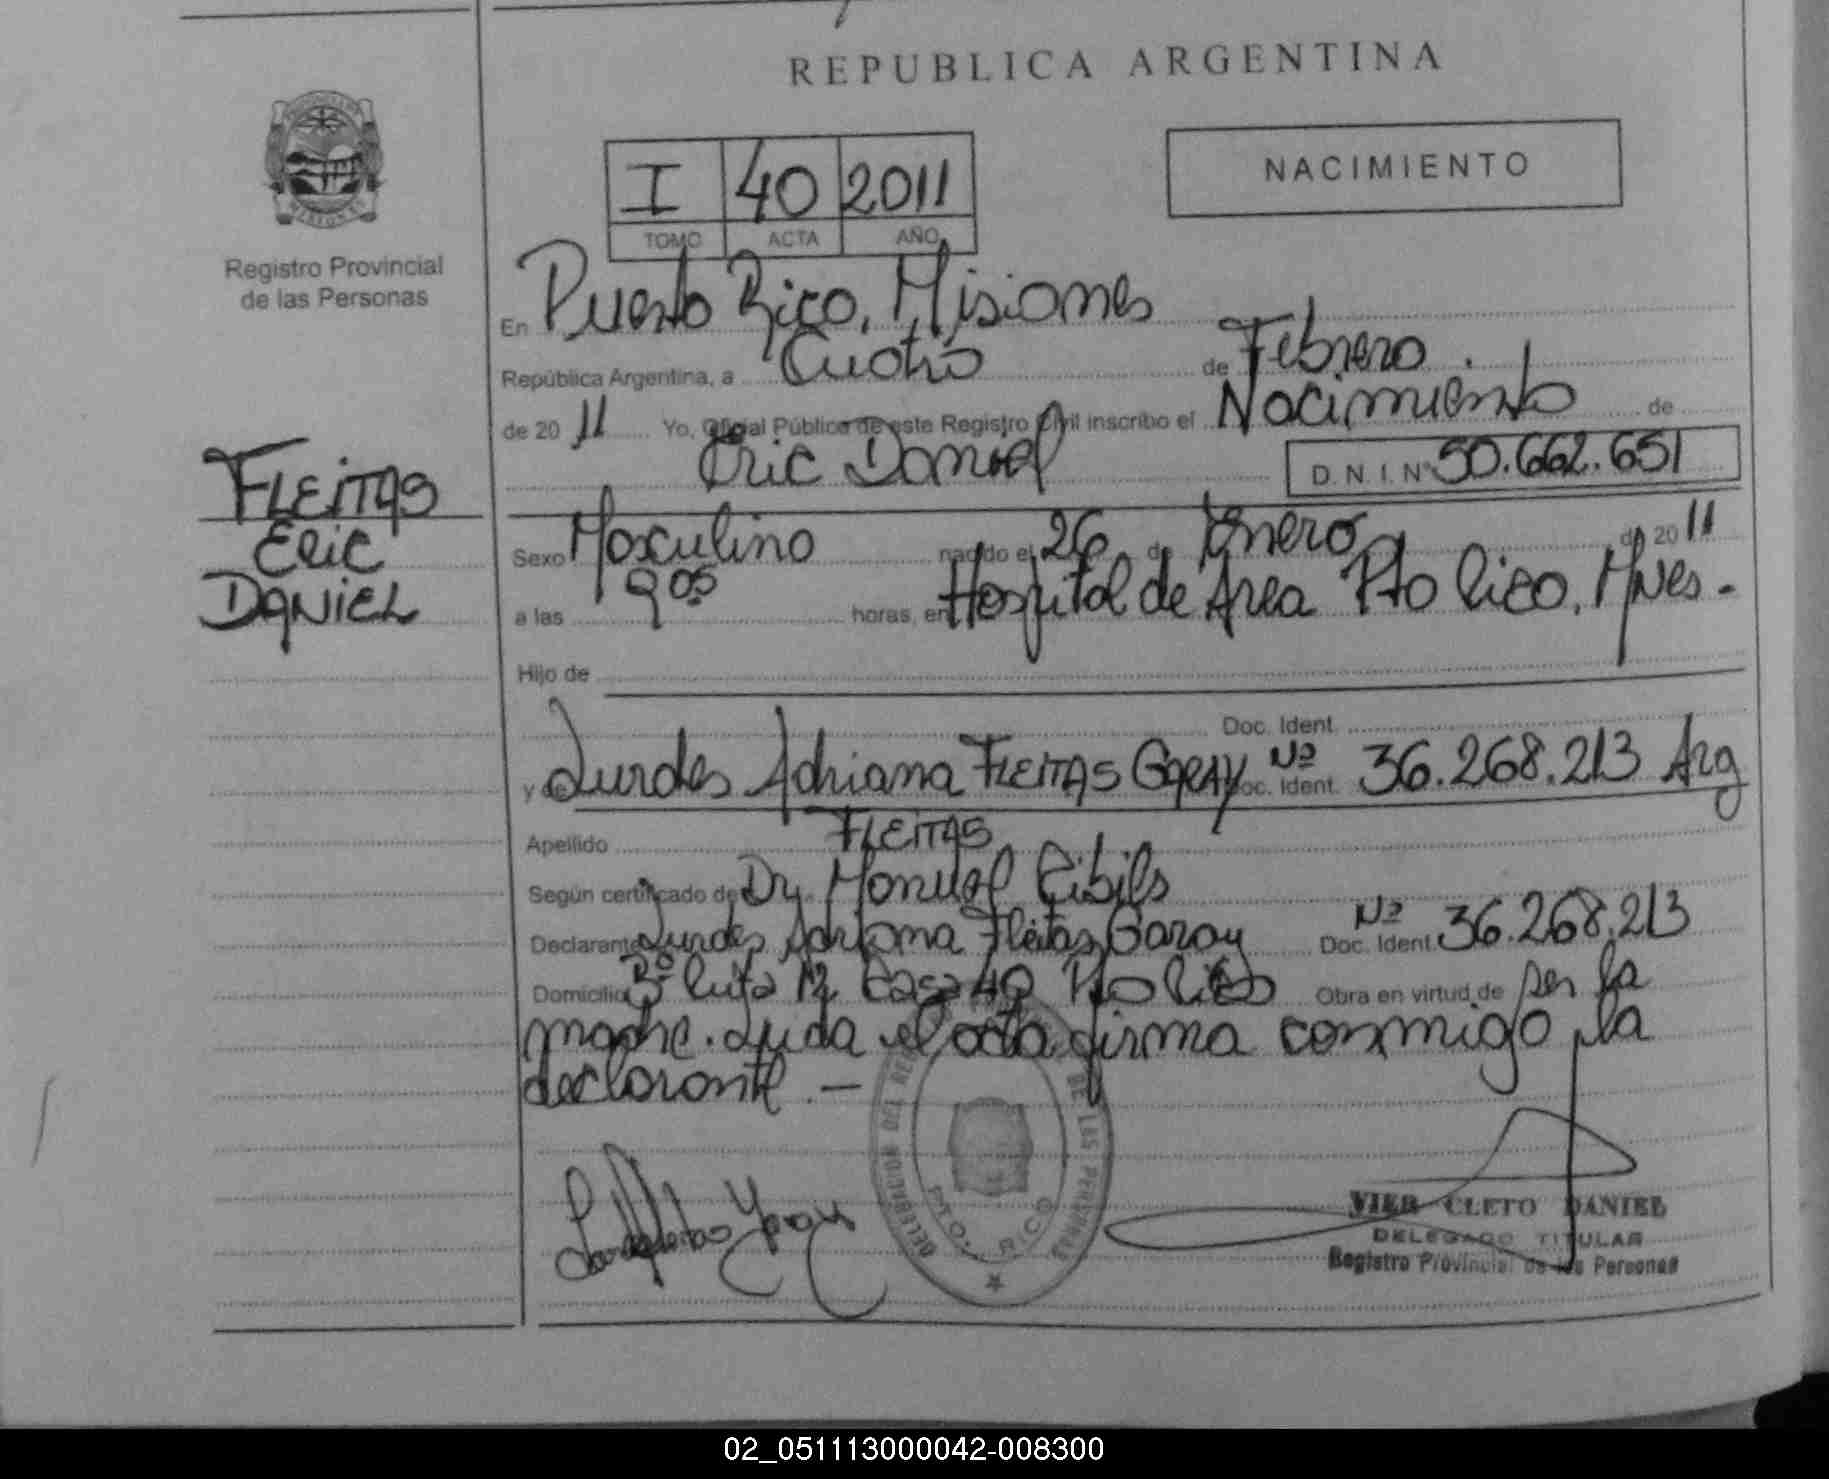 REPUBLICA ARGENTINA
NACIMIENTO
I 40 2011
TOMO ACTA AÑO
Registro Provincial
de las Personas
FLEITAS
ERIC
DANIEL
En Puerto Rico, Misiones
República Argentina, a Cuatro de Febrero
de 20 11 Yo, Oficial Público de este Registro Civil inscribo el Nacimiento de
Eric Daniel D.N.I. Nº 50.662.651
Sexo Masculino nacido el 26 de Enero de 20 11
a las 9 05 horas, en Hospital de Area Pto Rico, Mnes.-
Hijo de
Doc. Ident.
y de Lurdes Adriana FLEITAS GARAY Doc. Ident. Nº 36.268.213 Arg
Apellido FLEITAS
Según certificado de Dr. Manuel Cibils
Declarante Lurdes Adriana Fleitas Garay Doc. Ident. Nº 36.268.213
Domicilio Casa 40 Pto Rico Obra en virtud de ser la
madre. Leida el acta firma conmigo la
declarante.-
DELEGACION DEL REGISTRO DE LAS PERSONAS
PTO. RICO
VIER CLETO DANIEL
DELEGADO TITULAR
Registro Provincial de las Personas
02_051113000042-008300